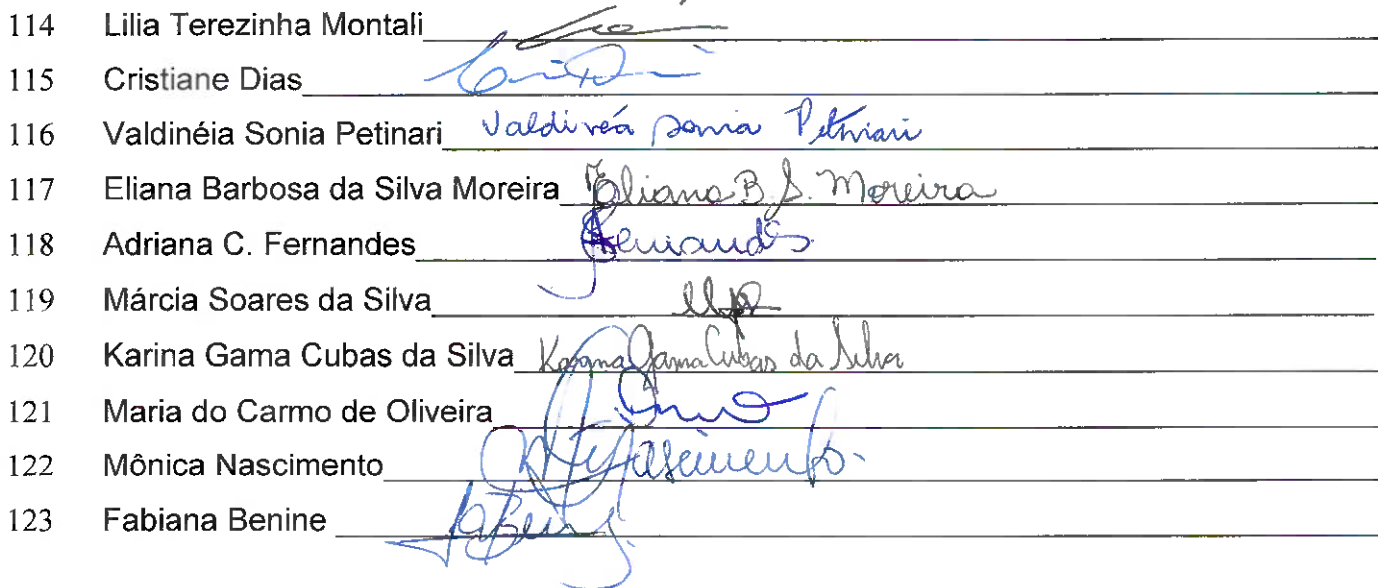 114 Lilia Terezinha Montali
115 Cristiane Dias
116 Valdinéia Sonia Petinari Valdineá Sonia Petinari
117 Eliana Barbosa da Silva Moreira Eliana B. S. Moreira
118 Adriana C. Fernandes Fernandes
119 Márcia Soares da Silva
120 Karina Gama Cubas da Silva Karina Gama Cubas da Silva
121 Maria do Carmo de Oliveira
122 Mônica Nascimento Nascimento
123 Fabiana Benine